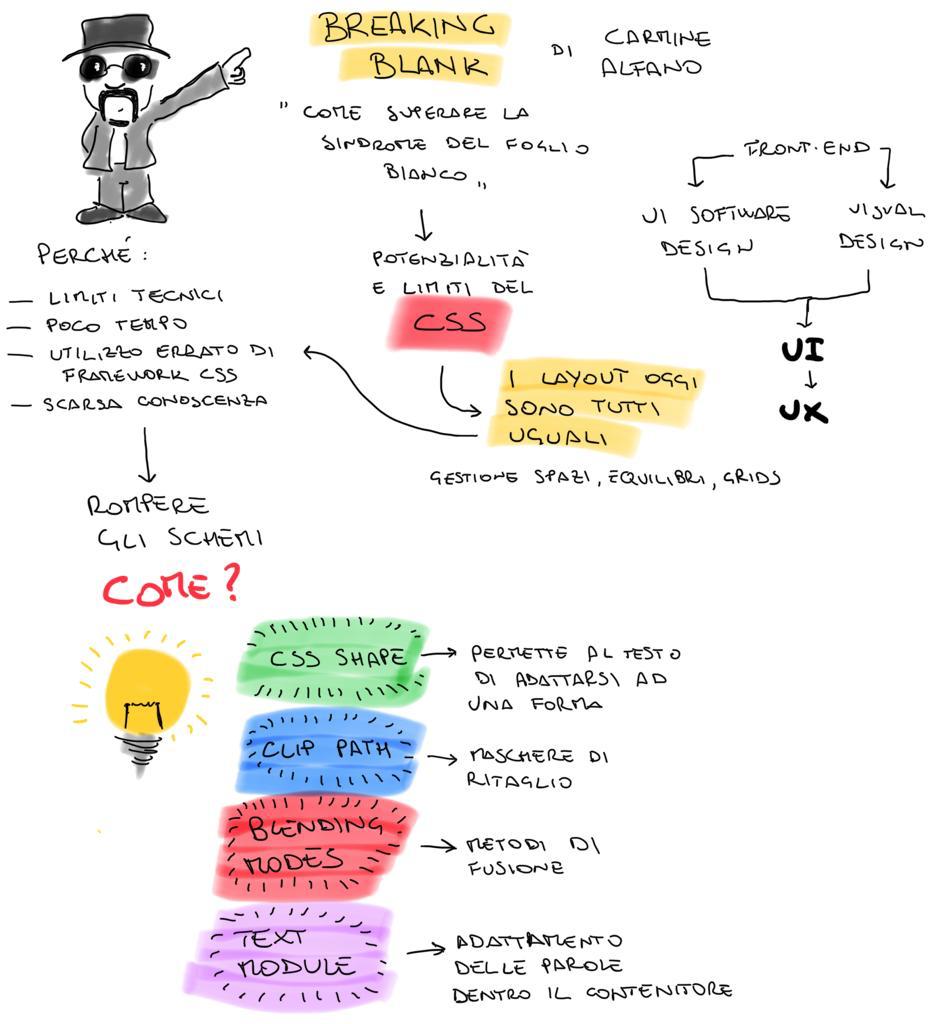 BREAKING
BLANK
DI CARMINE
ALFANO
" COME SUPERARE LA
SINDROME DEL FOGLIO
BIANCO "
FRONT-END
UI SOFTWARE
DESIGN
VISUAL
DESIGN
UI
UX
POTENZIALITÀ
E LIMITI DEL
CSS
I LAYOUT OGGI
SONO TUTTI
UGUALI
GESTIONE SPAZI, EQUILIBRI, GRIDS
PERCHÉ:
— LIMITI TECNICI
— POCO TEMPO
— UTILIZZO ERRATO DI
FRAMEWORK CSS
— SCARSA CONOSCENZA
ROMPERE
GLI SCHEMI
COME?
CSS SHAPE
PERMETTE AL TESTO
DI ADATTARSI AD
UNA FORMA
CLIP PATH
MASCHERE DI
RITAGLIO
BLENDING
MODES
METODI DI
FUSIONE
TEXT
MODULE
ADATTAMENTO
DELLE PAROLE
DENTRO IL CONTENITORE